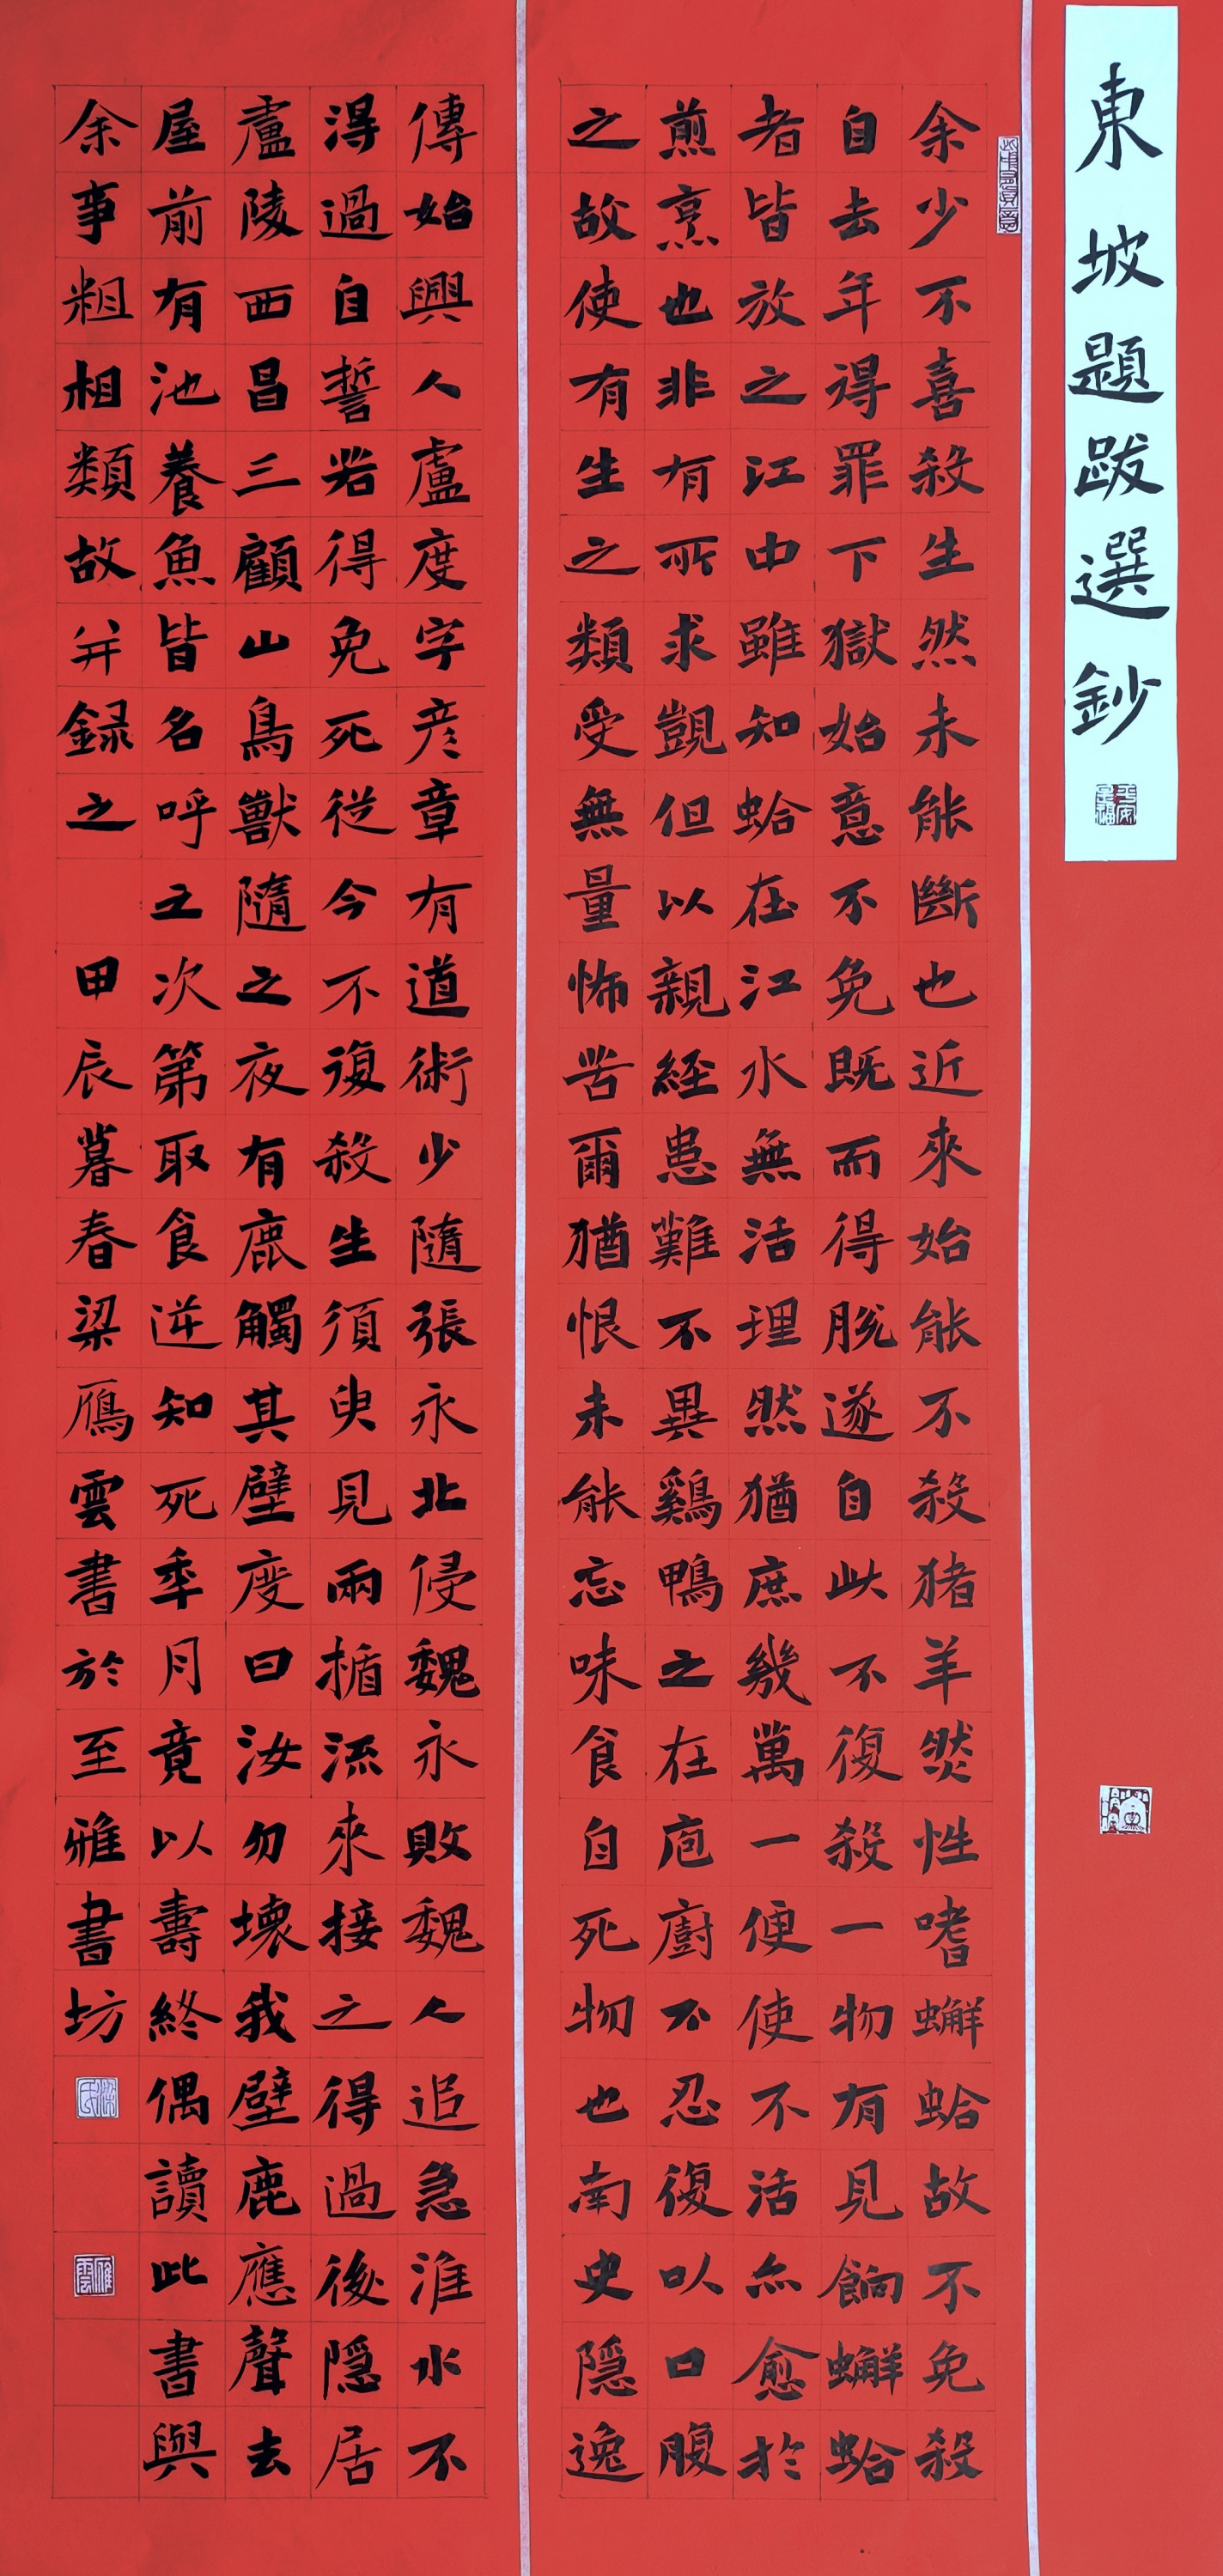 東坡題跋選鈔
余少不喜殺生然未能斷也近來始能不殺猪羊然性嗜蠏蛤故不免殺
自去年得罪下獄始意不免既而得脫遂自此不復殺一物有見餉蠏蛤
者皆放之江中雖知蛤在江水無活理然猶庶幾萬一便使不活亦愈於
煎烹也非有所求覬但以親經患難不異鷄鴨之在庖廚不忍復以口腹
之故使有生之類受無量怖苦爾猶恨未能忘味食自死物也南史隱逸
傳始興人盧度字彥章有道術少隨張永北侵魏永敗魏人追急淮水不
得過自誓若得免死從今不復殺生須臾見兩楯流來接之得過後隱居
盧陵西昌三顧山鳥獸隨之夜有鹿觸其壁度曰汝勿壞我壁鹿應聲去
屋前有池養魚皆名呼之次第取食逆知死年月竟以壽終偶讀此書與
余事粗相類故并録之 甲辰暮春梁鴈雲書於至雅書坊